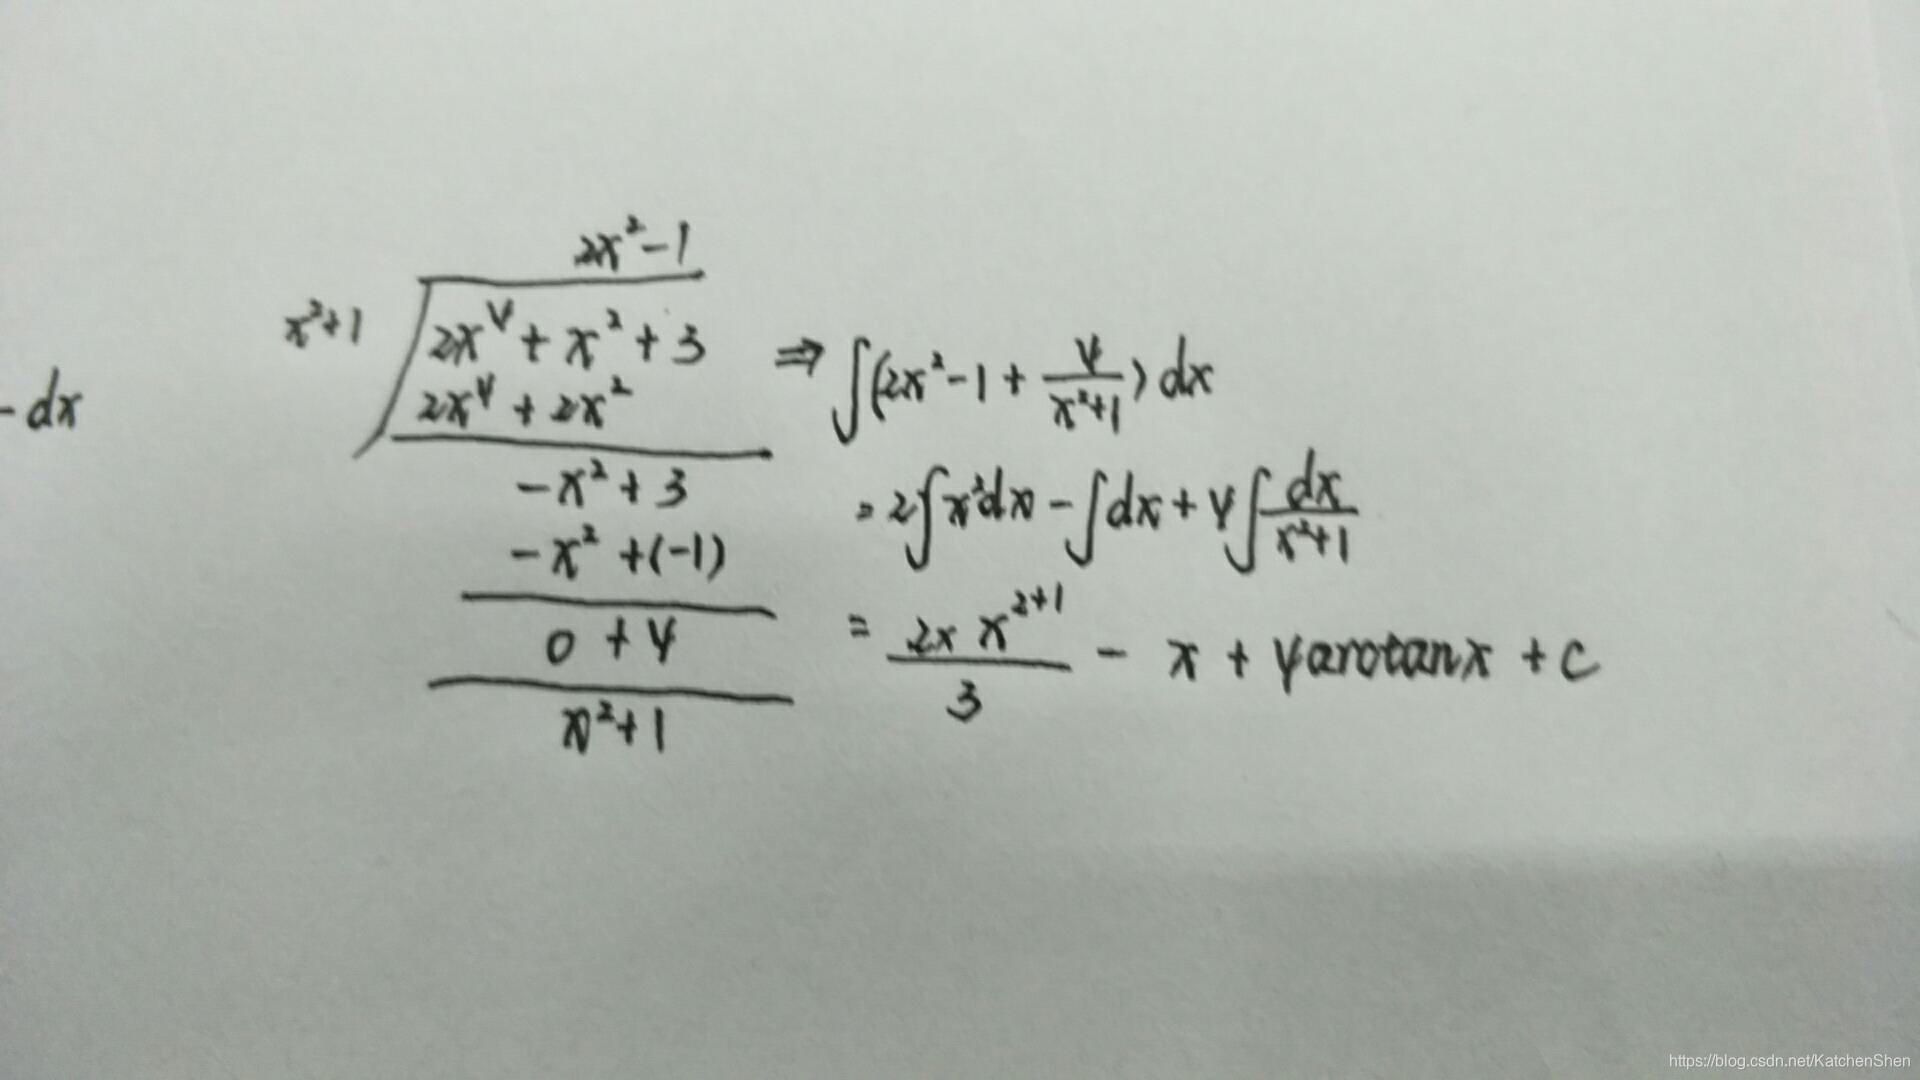 - dx
2x² - 1
x² + 1
2x⁴ + x² + 3
2x⁴ + 2x²
- x² + 3
- x² + (-1)
0 + 4
x² + 1
⇒ ∫(2x² - 1 + 4/(x² + 1)) dx
= 2∫x²dx - ∫dx + 4∫dx/(x² + 1)
= (2 × x²⁺¹)/3 - x + 4arctanx + C
https://blog.csdn.net/KatchenShen